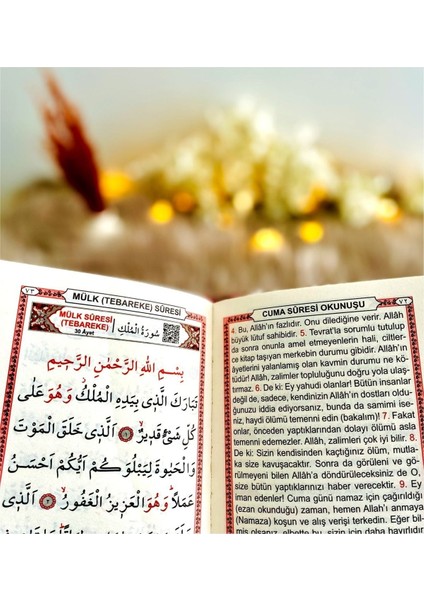 ٧٣
MÜLK (TEBAREKE) SÛRESİ
MÜLK SÛRESİ
(TEBAREKE)
30 Âyet
سُورَةُ الْمُلْكِ
بِسْمِ اللّٰهِ الرَّحْمٰنِ الرَّحِيمِ
تَبَارَكَ الَّذ۪ي بِيَدِهِ الْمُلْكُ وَهُوَ عَلٰى
كُلِّ شَيْءٍ قَد۪يرٌ ۙ ١ اَلَّذ۪ي خَلَقَ الْمَوْتَ
وَالْحَيٰوةَ لِيَبْلُوَكُمْ اَيُّكُمْ اَحْسَنُ
عَمَلًا وَهُوَ الْعَز۪يزُ الْغَفُورُ ۙ ٢ اَلَّذ۪ي
CUMA SÛRESİ OKUNUŞU
٧٢
4. Bu, Allâh'ın fazlıdır. Onu dilediğine verir. Allâh
büyük lütuf sahibidir. 5. Tevrat'la sorumlu tutulup
da sonra onunla amel etmeyenlerin hali, ciltler-
ce kitap taşıyan merkebin durumu gibidir. Allâh'ın
âyetlerini yalanlamış olan kavmin durumu ne kö-
tüdür! Allâh, zalimler topluluğunu doğru yola ulaş-
tırmaz. 6. De ki: Ey yahudi olanlar! Bütün insanlar
değil de, sadece, kendinizin Allâh'ın dostları oldu-
ğunuzu iddia ediyorsanız, bunda da samimi ise-
niz, haydi ölümü temenni edin (bakalım)! 7. Fakat
onlar, önceden yaptıklarından dolayı ölümü asla
temenni edemezler. Allâh, zalimleri çok iyi bilir. 8.
De ki: Sizin kendisinden kaçtığınız ölüm, mutla-
ka size kavuşacaktır. Sonra da görüleni ve görül-
meyeni bilen Allâh'a döndürüleceksiniz de O,
size bütün yaptıklarınızı haber verecektir. 9. Ey
iman edenler! Cuma günü namaz için çağırıldığı
(ezan okunduğu) zaman, hemen Allâh'ı anmaya
(Namaza) koşun ve alış verişi terkedin. Eğer bilmiş
olsanız, elbette bu, sizin için daha hayırlı